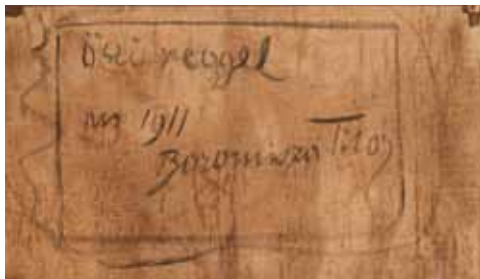 Őszi reggel
1911
Boromisza Tibor